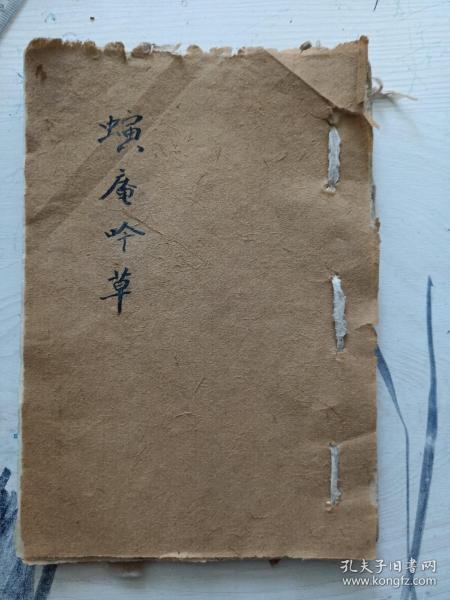 螾庵吟草
孔夫子旧书网
www.kongfz.com